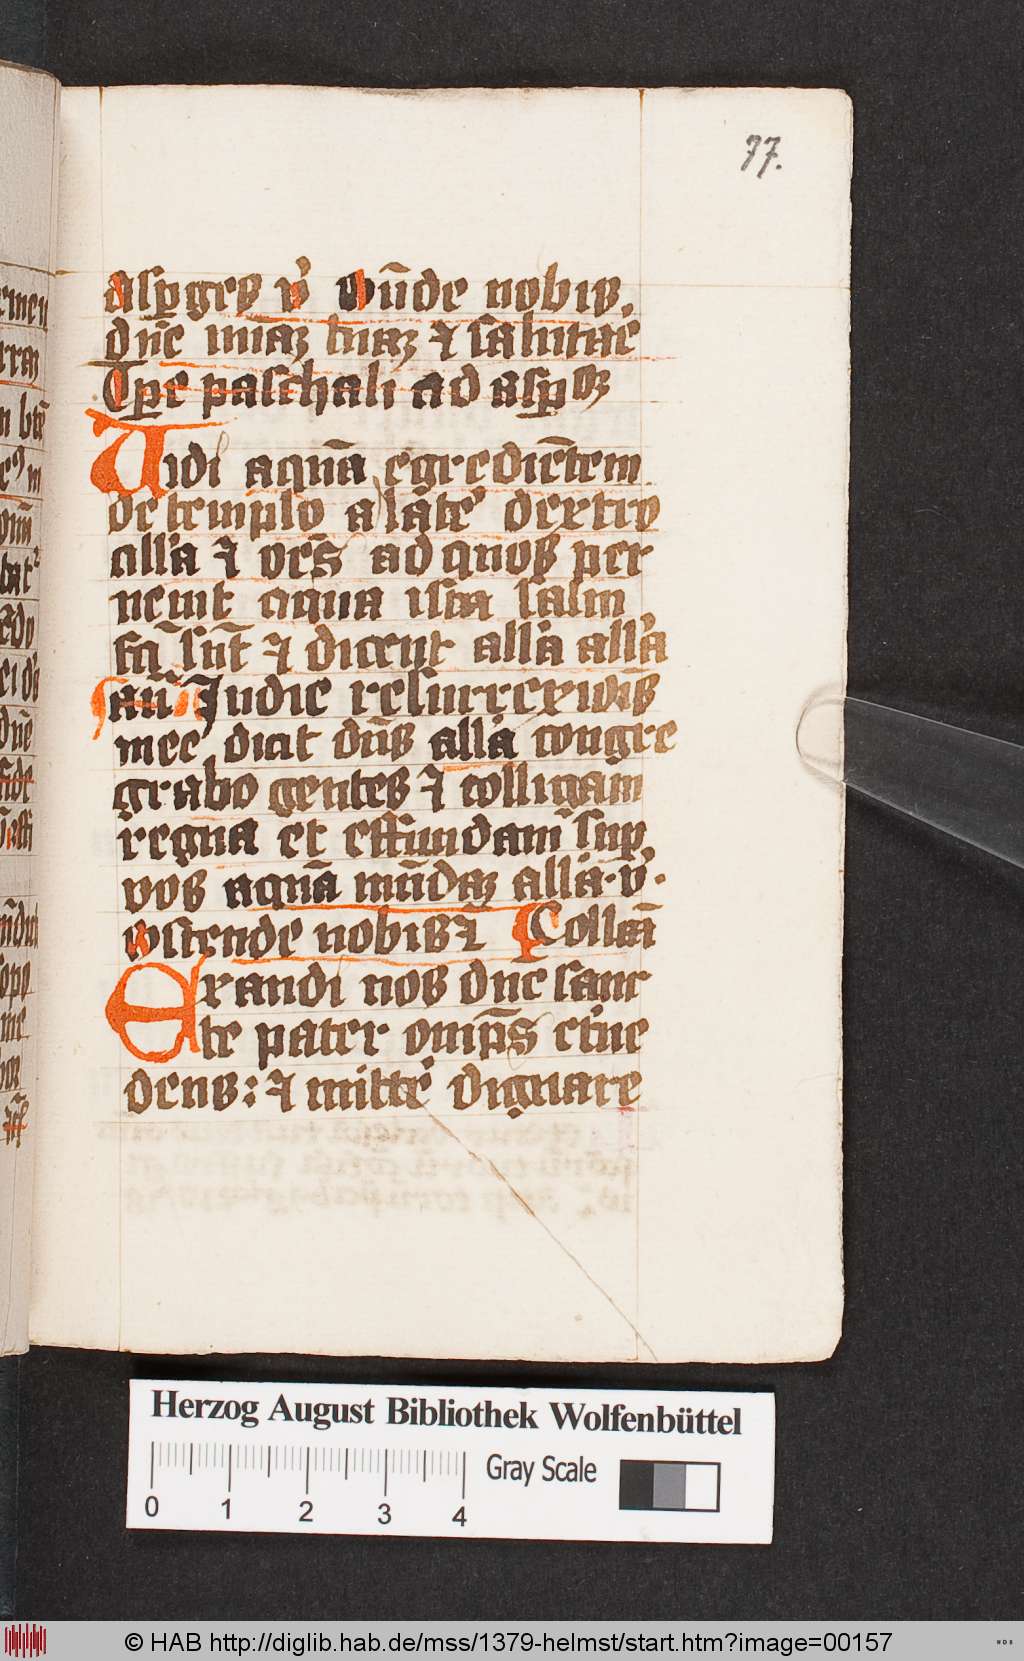 77.
Asꝑges v̓ Oñde nobis,
dñe miaꝫ tuaꝫ ⁊ salutaē
Tꝑe paschali ad aspꝫ
Vidi aquā egrediētem
de templo a late̓ dextro
all̓a ⁊ oēs ad quos per
uenit aqua ista salui
fc̄i sūt ⁊ dicent all̓a all̓a
añ In die resurrexiōis
mee dicit dñs all̓a congre
grabo gentes ⁊ colligam
regna et effundam̄ sup
vos aquā mūdaꝫ all̓a · v̓ ·
ostende nobis ⁊ Collcā
Exaudi nos dne sanc
te pater omp̄s et̓ne
deus : ⁊ mitte̓ dignare
Herzog August Bibliothek Wolfenbüttel
0 1 2 3 4 Gray Scale
© HAB http://diglib.hab.de/mss/1379-helmst/start.htm?image=00157